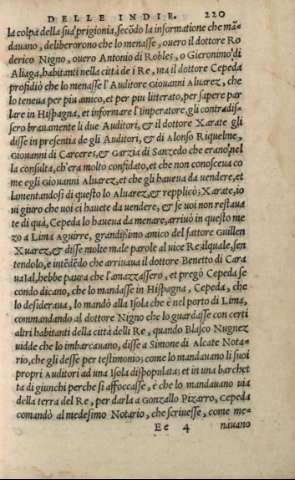 DELLE INDIE. 220
la colpa della sua prigionia, secõdo la informatione che mã
dauano, deliberorono che lo menasse, ouero il dottore Ro
derico Nigno, ouero Antonio di Robles, o Gieronimo di
Aliaga, habitanti nella città de i Re, ma il dottore Cepeda
profidiò che lo menasse l'Auditore Giouanni Aluarez, che
lo teneua per piu amico, et per piu litterato, per sapere par
lare in Hispagna, et informare l'imperatore, gli contradis-
sero brauamente li due Auditori, & il dottore Xarate gli
disse in presentia de gli Auditori, & di Alonso Riquelme,
Giouanni di Carceres, & Garzia di Sauzedo che erano nel
la consulta, ch'era molto confidato, et che non conosceua co
me egli Giouanni Aluarez, et che gli haueua da vendere, et
lamentandosi di questo lo Aluarez, & repplicò, Xarate, io
ui giuro che uoi ci hauete da vendere, & se uoi non restaua
te di quà, Cepeda lo haueua da menare, arriuò in questo me
zo a Lima Aguirre, grandissimo amico del fattore Guillen
Xuarez, & disse molte male parole al uice Re ilquale, sen
tendolo, e intẽdẽdo che arriuaua il dottore Benetto di Cara
uaial, hebbe paura che l'amazzassero, et pregò Cepeda se
condo dicano, che lo mandasse in Hispagna, Cepeda, che
lo desideraua, lo mandò alla Isola che è nel porto di Lima,
commandando al dottore Nigno che lo guardasse con certi
altri habitanti della città delli Re, quando Blasco Nugnez
uidde che lo imbarcauano, disse a Simone di Alcate Nota-
rio, che gli desse per testimonio; come lo mandauano li suoi
propri Auditori ad una Isola dispopulata: et in una barchet
ta di giunchi perche si affoccasse, è che lo mandauano via
della terra del Re, per darla a Gonzallo Pizarro, Cepeda
comandò al medesimo Notario, che scriuesse, come me-
Ee 4 nauano